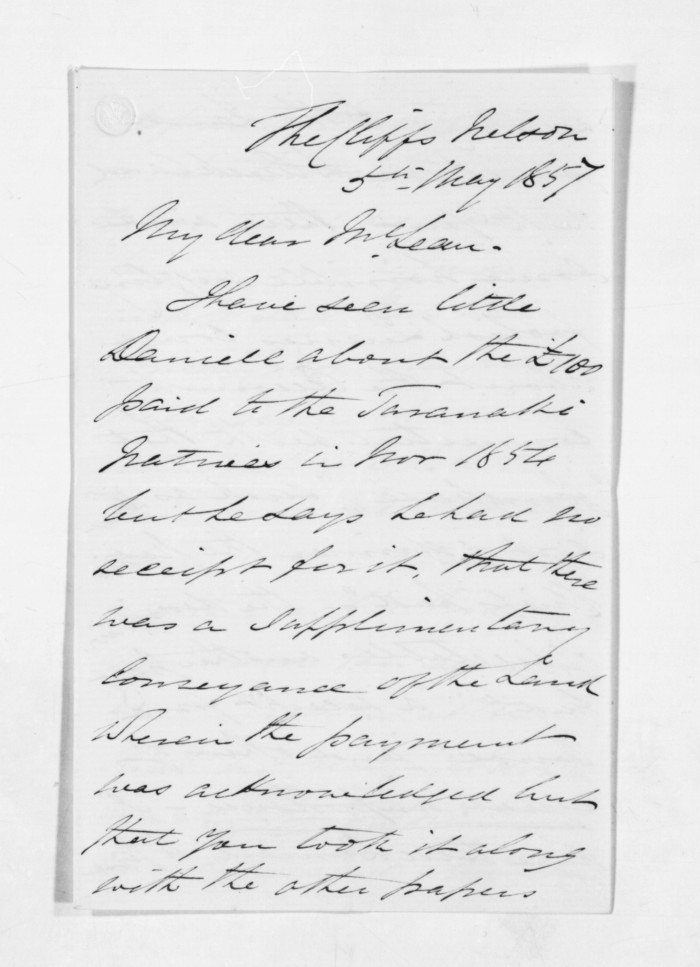 The Cliffs Nelson
5th May 1857
My dear McLean.
I have seen little
Daniell about the £100
paid to the Taranaki
Natives in Nov 1854
but he says he had no
receipt for it, that there
was a supplimentary
Conveyance of the Land
wherein the payment
was acknowledged but
that you took it along
with the other papers